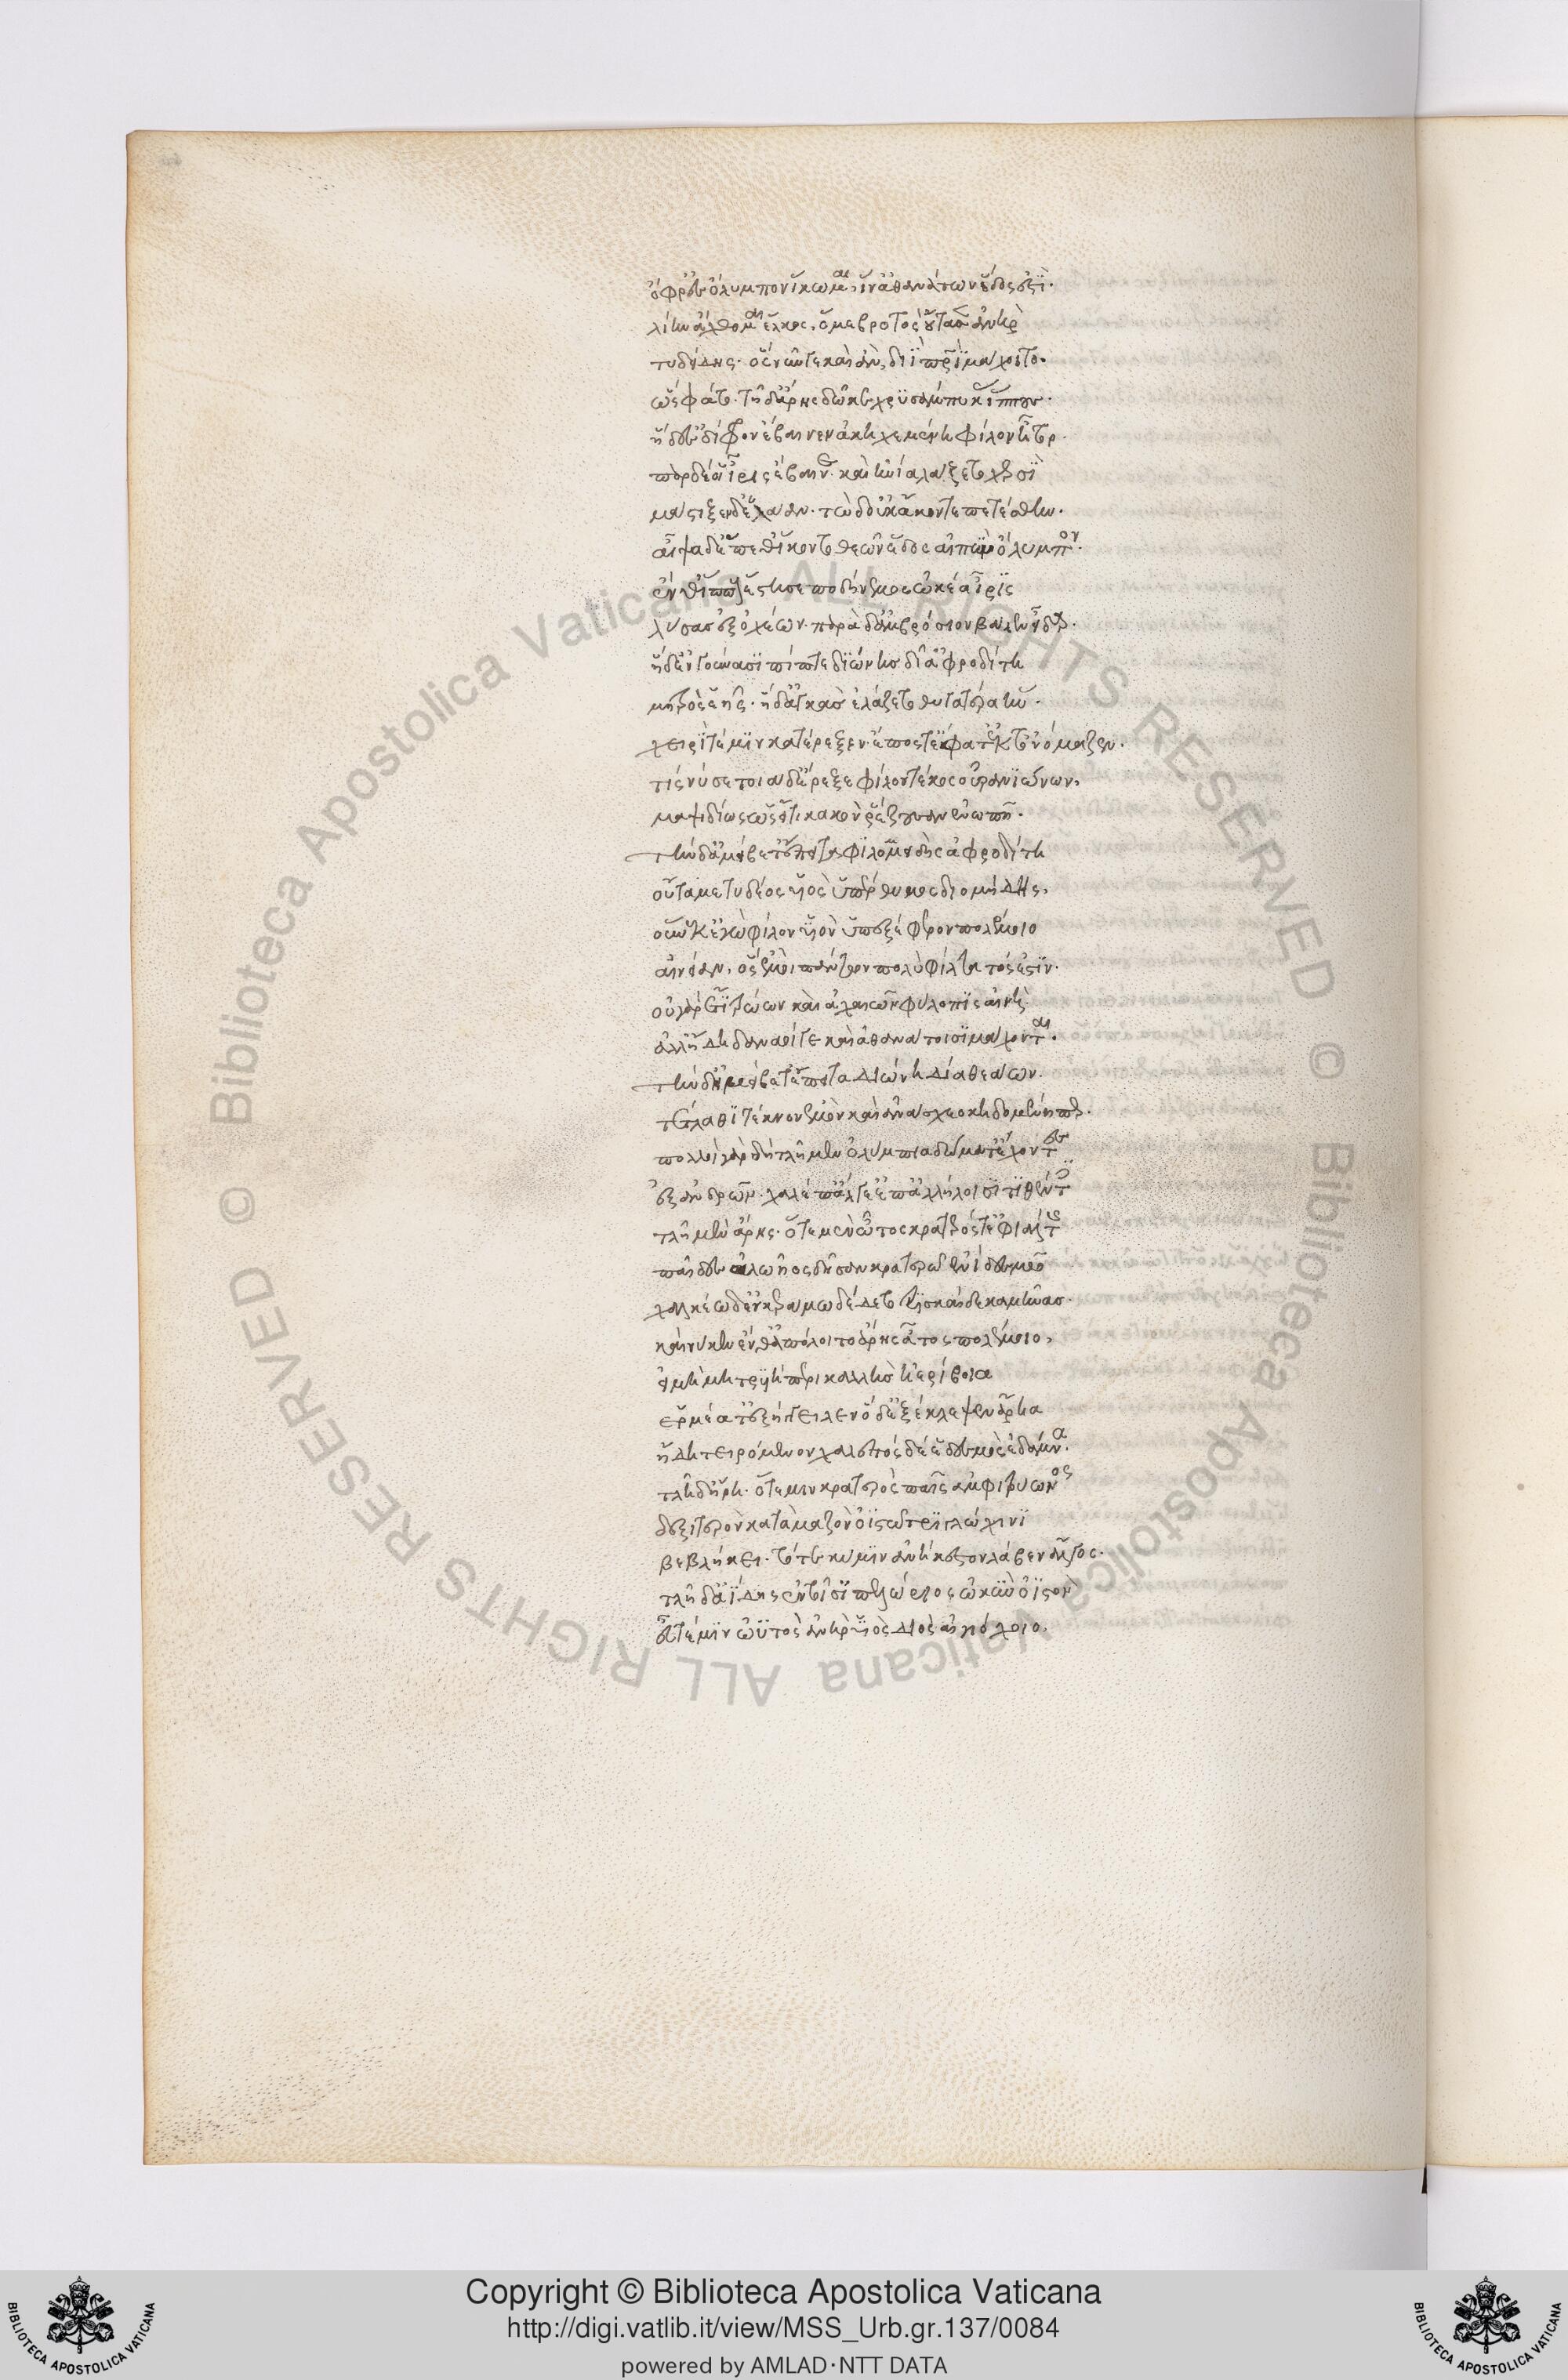 ὄφρ' ἐς ὄλυμπον ἵκωμαι, ἵν' ἀθανάτων ἕδος ἐστί.
λίην ἄχθομαι ἕλκος, ὅ με βροτὸς οὔτασεν ἀνὴρ
τυδείδης· ὃς νῦν γε καὶ ἂν διῒ πατρὶ μάχοιτο.
ὣς φάτο· τῇ δ' ἄρης δῶκε χρυσάμπυκας ἵππους.
ἡ δ' ἐς δίφρον ἔβαινεν ἀκηχεμένη φίλον ἦτορ.
πὰρ δέ οἱ ἶρις ἔβαινε· καὶ ἡνία λάζετο χερσὶ
μάστιξεν δ' ἐλάαν· τὼ δ' οὐκ ἄκοντε πετέσθην.
αἶψα δ' ἔπειθ' ἵκοντο θεῶν ἕδος αἰπὺν ὄλυμπον.
ἔνθ' ἵππους ἔστησε ποδήνεμος ὠκέα ἶρις
λύσασ' ἐξ ὀχέων· παρὰ δ' ἀμβρόσιον βάλεν εἶδαρ.
ἡ δ' ἐν γούνασι πίπτε διώνης δῖ' ἀφροδίτη
μητρὸς ἑῆς· ἡ δ' ἀγκὰς ἐλάζετο θυγατέρα ἥν.
χειρί τέ μιν κατέρεξεν· ἔπος τ' ἔφατ' ἔκ τ' ὀνόμαζεν.
τίς νύ σε τοιάδ' ἔρεξε φίλον τέκος οὐρανιώνων,
μαψιδίως ὡς εἴ τι κακὸν ῥέζουσαν ἐνωπῇ.
τὴν δ' ἠμείβετ' ἔπειτα φιλομμειδὴς ἀφροδίτη
οὖτά με τυδέος υἱὸς ὑπέρθυμος διομήδης,
οὕνεκ' ἐγὼ φίλον υἱὸν ὑπεξέφερον πολέμοιο
αἰνείαν, ὃς ἐμοὶ πάντων πολὺ φίλτατός ἐστιν.
οὐ γὰρ ἔτι τρώων καὶ ἀχαιῶν φύλοπις αἰνὴ.
ἀλλ' ἤδη δαναοί γε καὶ ἀθανάτοισι μάχονται.
τὴν δ' ἠμείβετ' ἔπειτα διώνη δῖα θεάων.
τέτλαθι τέκνον ἐμὸν καὶ ἀνάσχεο κηδομένη περ.
πολλοὶ γὰρ δὴ τλῆμεν ὀλύμπια δώματ' ἔχοντες
ἐξ ἀνδρῶν· χαλέπ' ἄλγε' ἐπ' ἀλλήλοισι τιθέντες
τλῆ μὲν ἄρης· ὅτε μιν ὦτος κρατερός τ' ἐφιάλτης
παῖδες ἀλωῆος δῆσαν κρατερῷ ἐνὶ δεσμῷ
χαλκέῳ δ' ἐν κεράμῳ δέδετο τρισκαίδεκα μῆνας.
καί νύ κεν ἔνθ' ἀπόλοιτο ἄρης ἆτος πολέμοιο,
εἰ μὴ μητρυιὴ περικαλλὴς ἠερίβοια
ἑρμέᾳ ἐξήγγειλεν ὁ δ' ἐξέκλεψεν ἄρηα
ἤδη τειρόμενον χαλεπὸς δέ ἑ δεσμὸς ἐδάμνα.
τλῆ δ' ἥρη· ὅτε μιν κρατερὸς παῖς ἀμφιτρύωνος
δεξιτερὸν κατὰ μαζὸν ὀϊστῷ τριγλώχινι
βεβλήκει· τότε καί μιν ἀνήκεστον λάβεν ἄλγος.
τλῆ δ' ἀΐδης ἐν τοῖσι πελώριος ὠκὺν ὀϊστὸν
εὖτέ μιν ωὑτὸς ἀνὴρ υἱὸς διὸς αἰγιόχοιο.
Copyright © Biblioteca Apostolica Vaticana
http://digi.vatlib.it/view/MSS_Urb.gr.137/0084
powered by AMLAD·NTT DATA